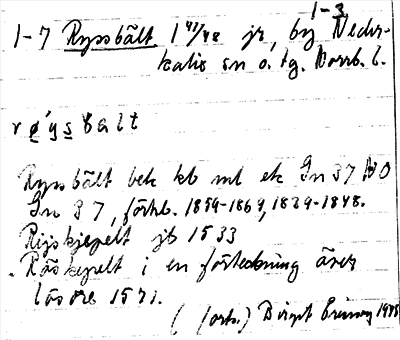 1-3
1-7 Ryssbält 1 47/48 jr, by Neder-
kalix sn o. tg. Norrb. l.
røysbalt
Ryssbält bek kb ml ek Gn 37 NO
Gn 37, förkb. 1859-1869, 1839-1848.
Rijskiepelt jb 1533
Röskepelt i en förteckning över
lösöre 1571.
( (ortr.) Birgit 1948